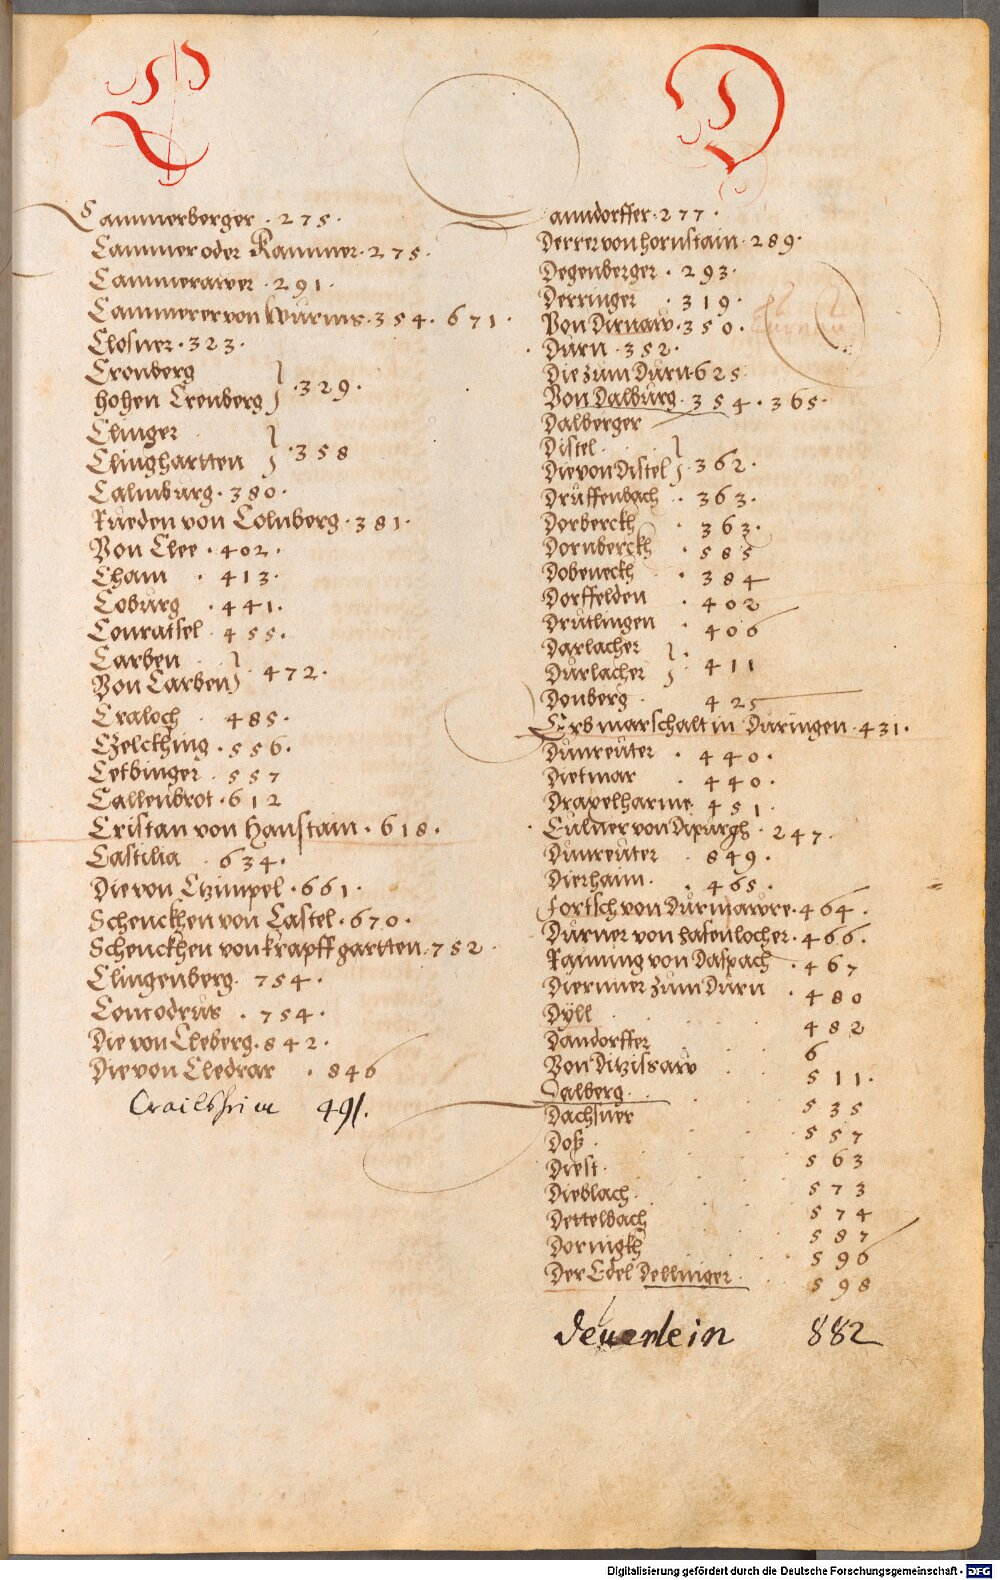 C
Cammerberger · 275 ·
Cammer oder Kammer · 275 ·
Cammerawer · 291 ·
Cammerer von Wurms · 354 · 671 ·
Closner · 323 ·
Cronberg
hohen Crenberg } · 329 ·
Clinger
Clinghartten } · 358
Calmburg · 380 ·
Rueden von Colnberg · 381 ·
Von Clee · 402 ·
Cham · 413 ·
Coburg · 441 ·
Conratsel · 455 ·
Carben
Von Carben } 472 ·
Craloch · 485 ·
Czelckhing · 556 ·
Cetbinger · 557
Callenbrot · 612
Cristan von Hanstain · 618 ·
Castilia · 634 ·
Die von Czimpel · 661 ·
Schenckhen von Castel · 670 ·
Schenckhen von krapffgartten · 752 ·
Clingenberg · 754 ·
Comodrus · 754 ·
Die von Cleberg · 842 ·
Die von Cledrar · 846
Crailsheim 491.
D
Damdorffer · 277 ·
Derrer von hornstain · 289 ·
Degenberger · 293 ·
Derringer · 319 ·
Von Dirnaw · 350 ·
Durn · 352 ·
Die zum Durn 625
Von Dalburg · 354 · 365 ·
Dalberger
Distel
Die von Distel } · 362 ·
Druffenbach · 363 ·
Dorberckh · 363 ·
Dornberckh · 585
Dobeneckh · 384
Dorffelden · 402
Drutlingen · 406
Darlacher
Durlacher } · 411
Donberg · 425
Erbmarschalt in Duringen · 431 ·
Dunreuter · 440 ·
Dietmar · 440 ·
Draxelharme 451
Culner von Dipurgh · 247 ·
Dunreuter · 849 ·
Dierhaim · 465 ·
Fortsch von Durmawre · 464 ·
Durner von Hasenlocher · 466 ·
Raming von Daspach · 467
Diermer zum Durn · 480
Dyll 482
Dandorffer 6
Von Ditzissaw 511 ·
Dalberg
Dachsner 535
Doss 557
Diest 563
Dieblach 573
Dettelbach 574
Dornigkh 587
596
Der Edel Dellinger 598
Deuerlein 882
Digitalisierung gefördert durch die Deutsche Forschungsgemeinschaft - DFG